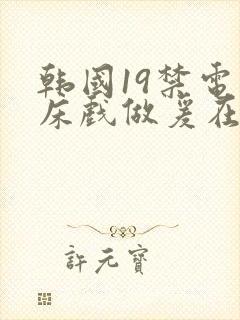 韩国19禁电
床戏做爰在
許元寶